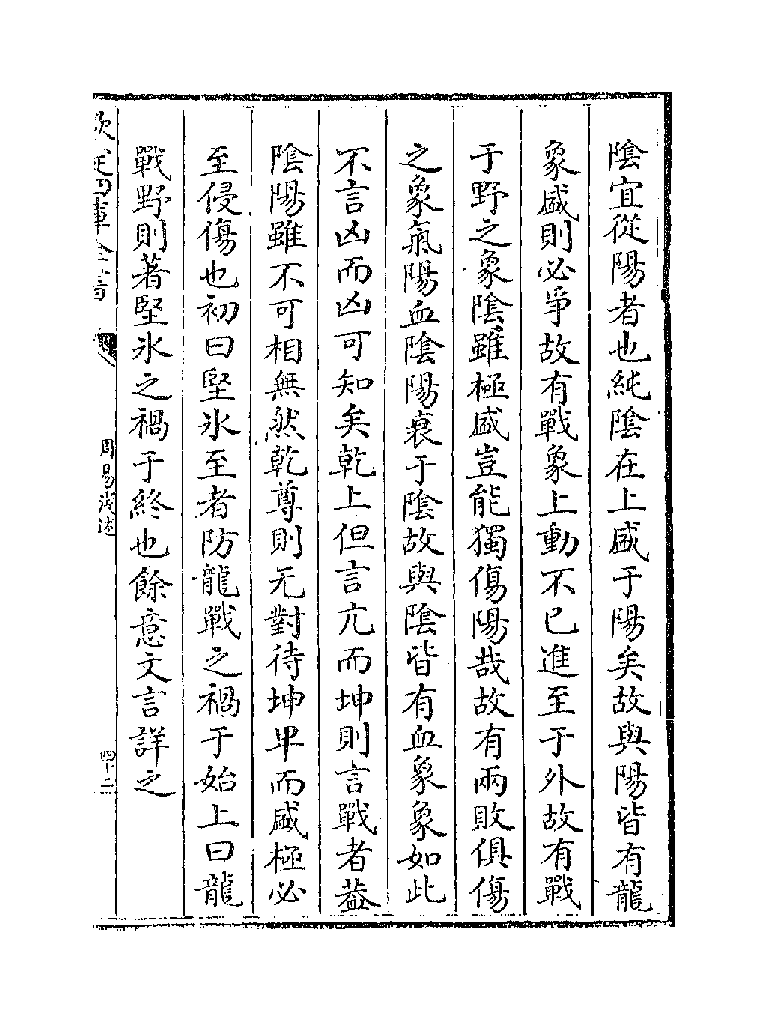 陰宜從陽者也純陰在上盛于陽矣故與陽皆有龍
象盛則必爭故有戰象上動不已進至于外故有戰
于野之象陰雖極盛豈能獨傷陽哉故有兩敗俱傷
之象氣陽血陰陽衰于陰故與陰皆有血象象如此
不言凶而凶可知矣乾上但言亢而坤則言戰者葢
陰陽雖不可相無然乾尊則无對待坤卑而盛極必
至侵傷也初曰堅氷至者防龍戰之禍于始上曰龍
戰野則著堅氷之禍于終也餘意文言詳之
欽定四庫全書
周易淺述
四十二